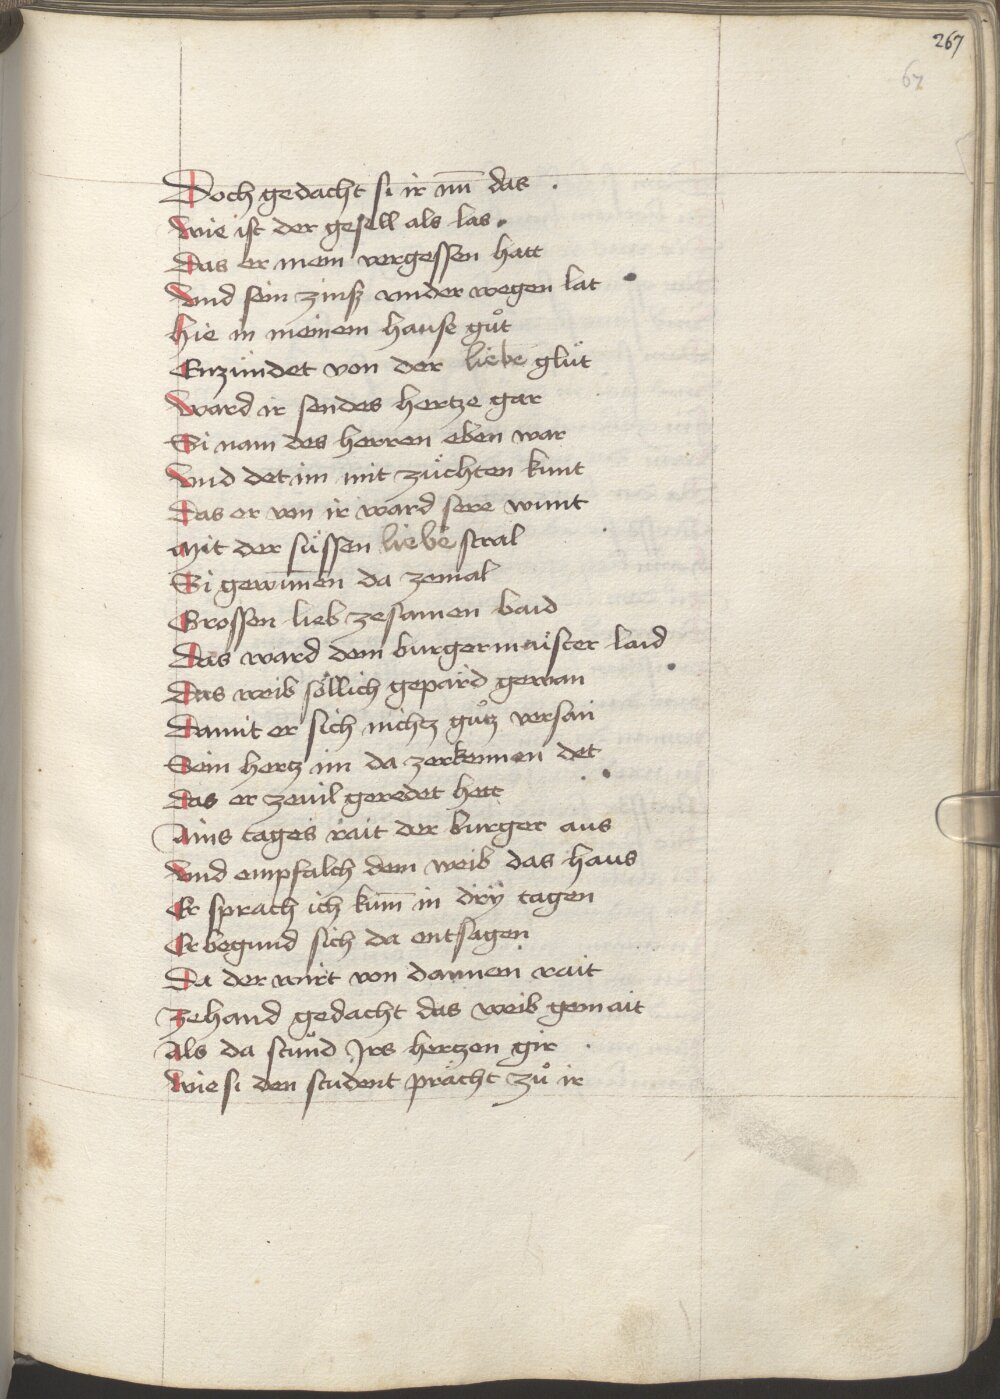 267
62
Doch gedacht si ir nū das .
Wie ist der gesell als las .
Das er mein vergessen hatt
Vnd sein zinß vnder wegen lat
Hie in meinem hause gůt
Enzündet von der liebe glüt
Ward ir sendes hertze gar
Si nam des herren eben war
Vnd det im mit züchten kunt
Das er von ir ward sere wunt
Mit der süssen liebe stral
Si gewiñen da zemal
Grossen lieb zesamen baid
Das ward dem burgermaister laid
Das weib söllich gepärd gewan
Damit er sich nichtz gůtz versan
Sein hertz im da zerkennen det
Das er zeuil geredet hett
Ains tages rait der burger aus
Vnd empfalch dem weib das haus
Er sprach ich kum̄ in dry tagen
Er begund sich da entsagen
Da der wirt von dannen rait
Zehand gedacht das weib gemait
Als da stund Irs hertzen gir .
Wie si den student prächt zů ir